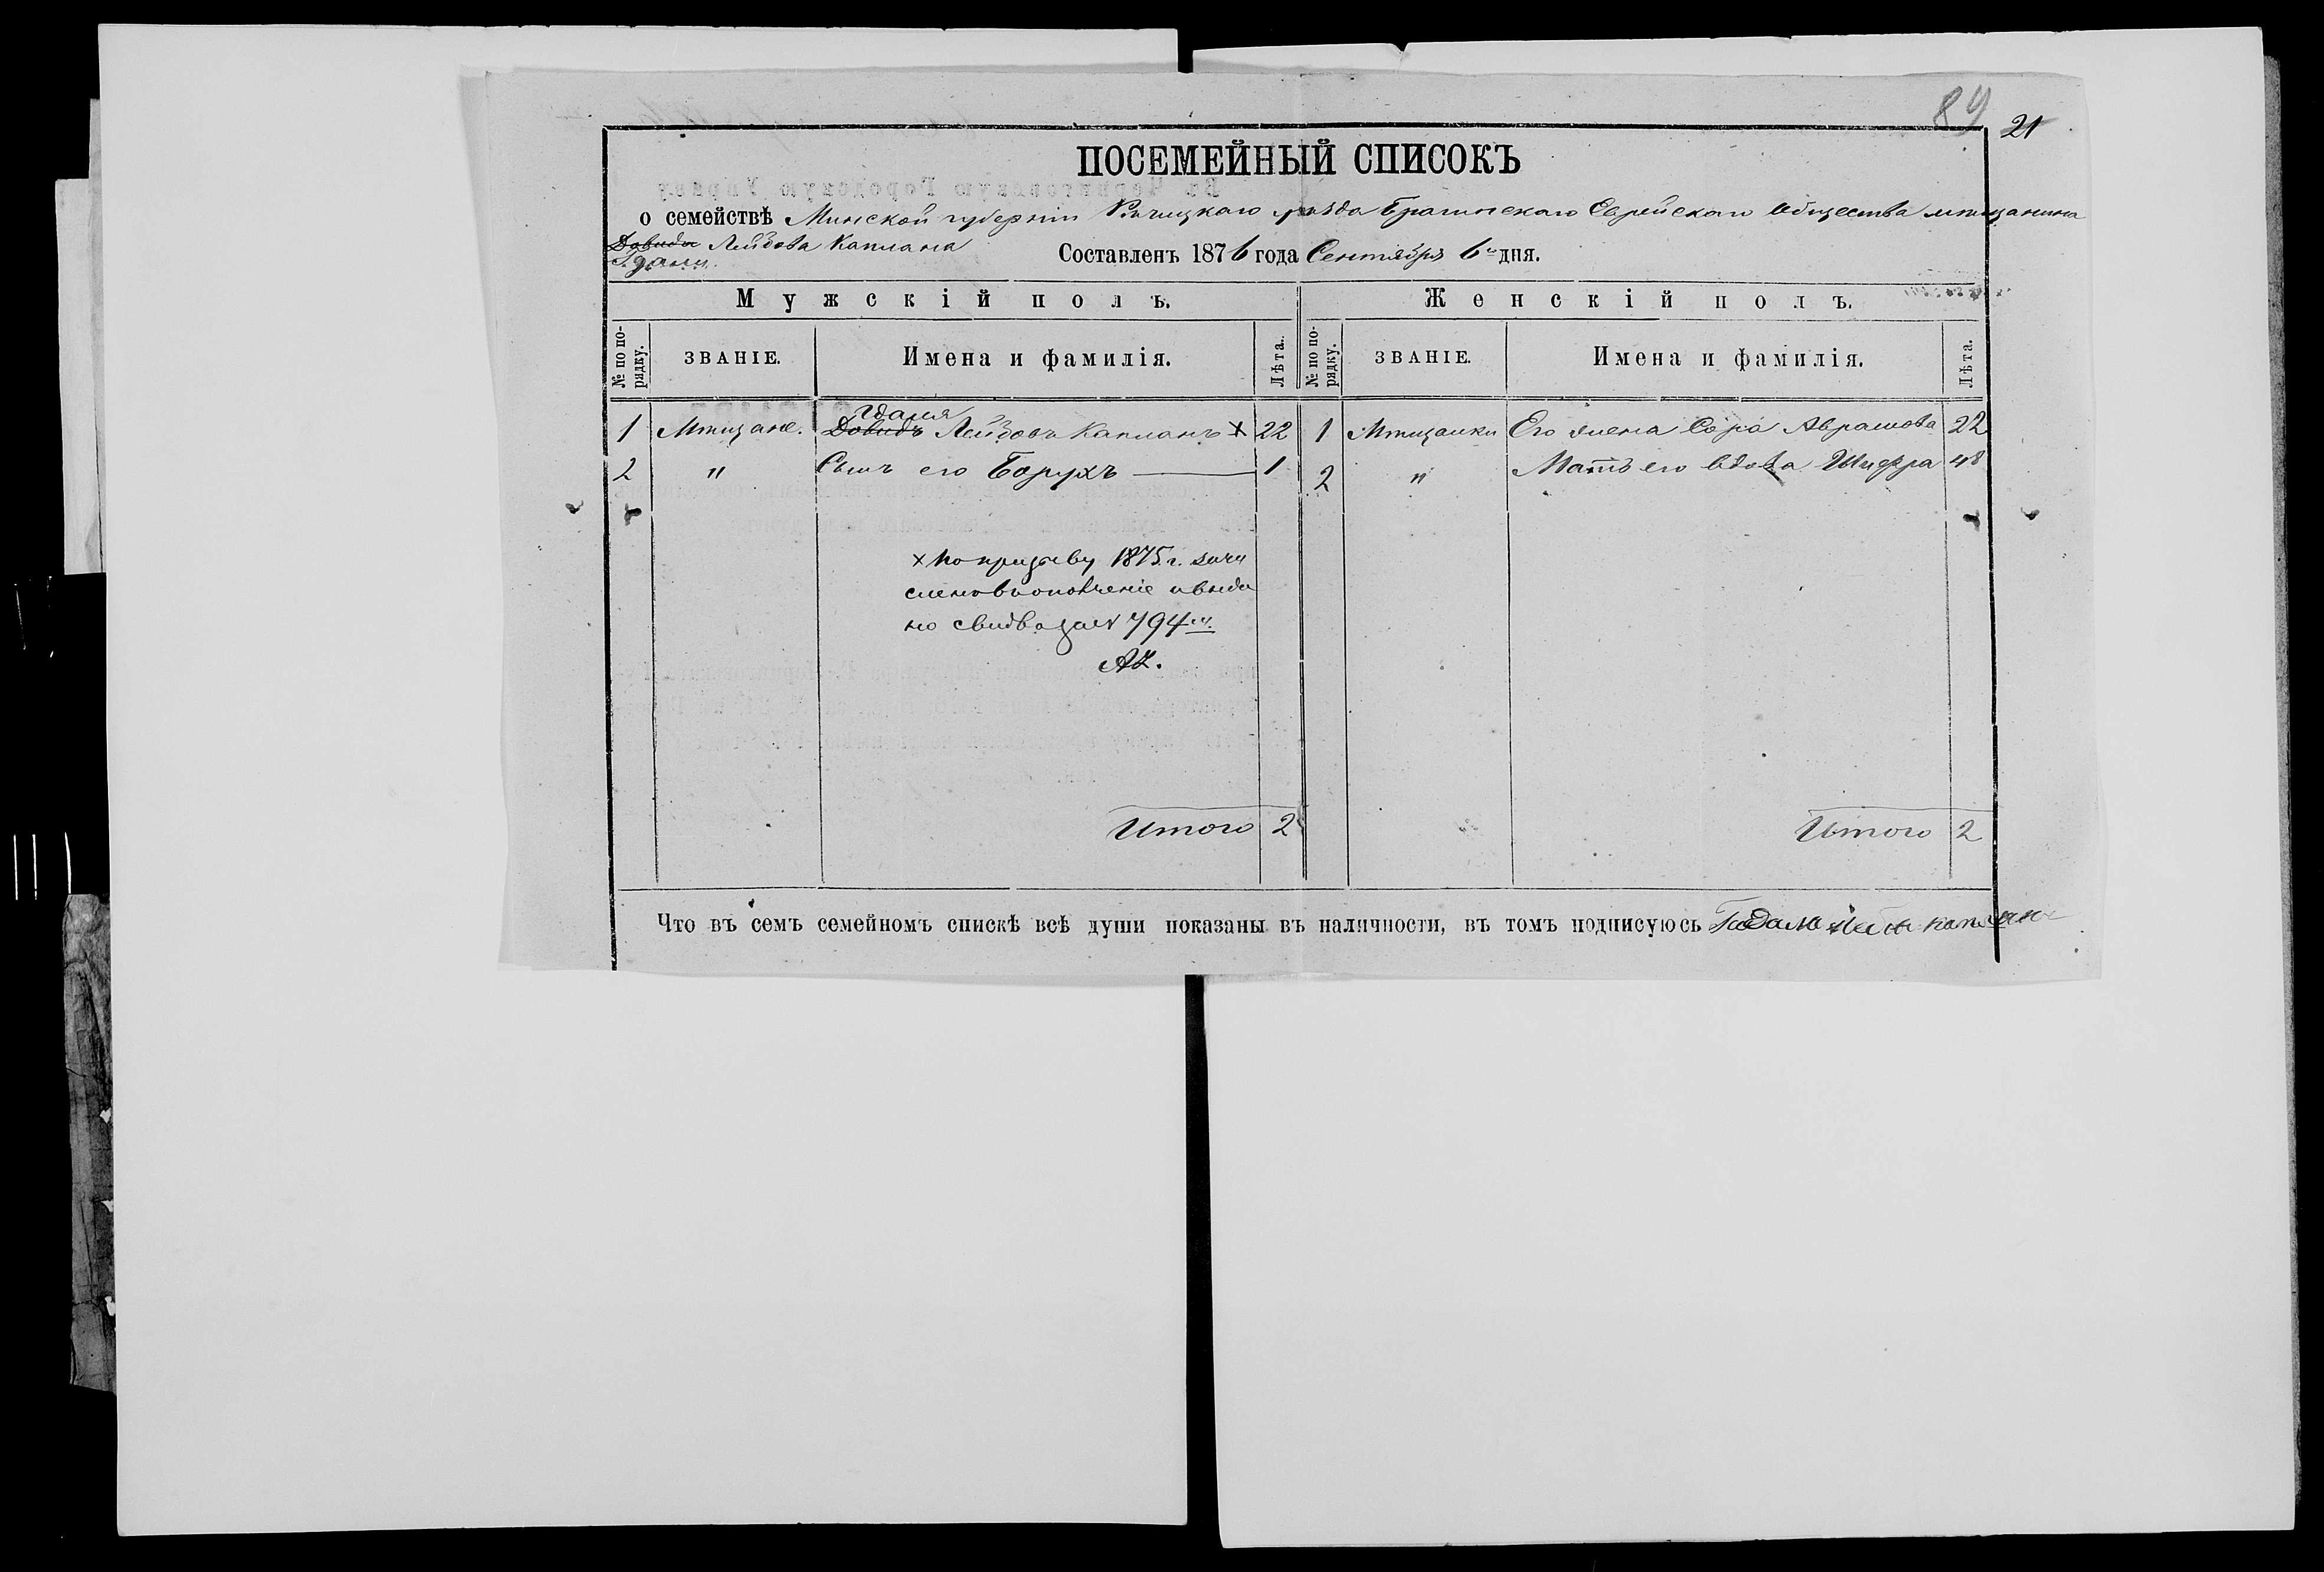 89 21
ПОСЕМЕЙНЫЙ СПИСОКЪ
о семействѣ Минской губерніи Рѣчицкаго уѣзда Брагинскаго Еврейскаго Общества мѣщанина
Довида Лейбова Каплана Составленъ 1876 года Сентября 6 дня.
Гдали
Мужскій полъ. Женскій полъ.
№ по порядку. ЗВАНІЕ. Имена и фамилія. Лѣта. № по порядку. ЗВАНІЕ. Имена и фамилія. Лѣта.
Гдаля
1 Мѣщане. Довидъ Лейбовъ Капланъ × 22 1 Мѣщанки Его жена Сора Абрамова 22
2 " Сынъ его Борухъ — 1 2 " Мать его вдова Шифра 48
× По призыву 1875 г. зачи
сленъ въ ополченіе и выда
но свид-во за № 794
АZ.
Итого 2 Итого 2
Что въ семъ семейномъ спискѣ всѣ души показаны въ наличности, въ томъ подписуюсь Гдаля Капланъ